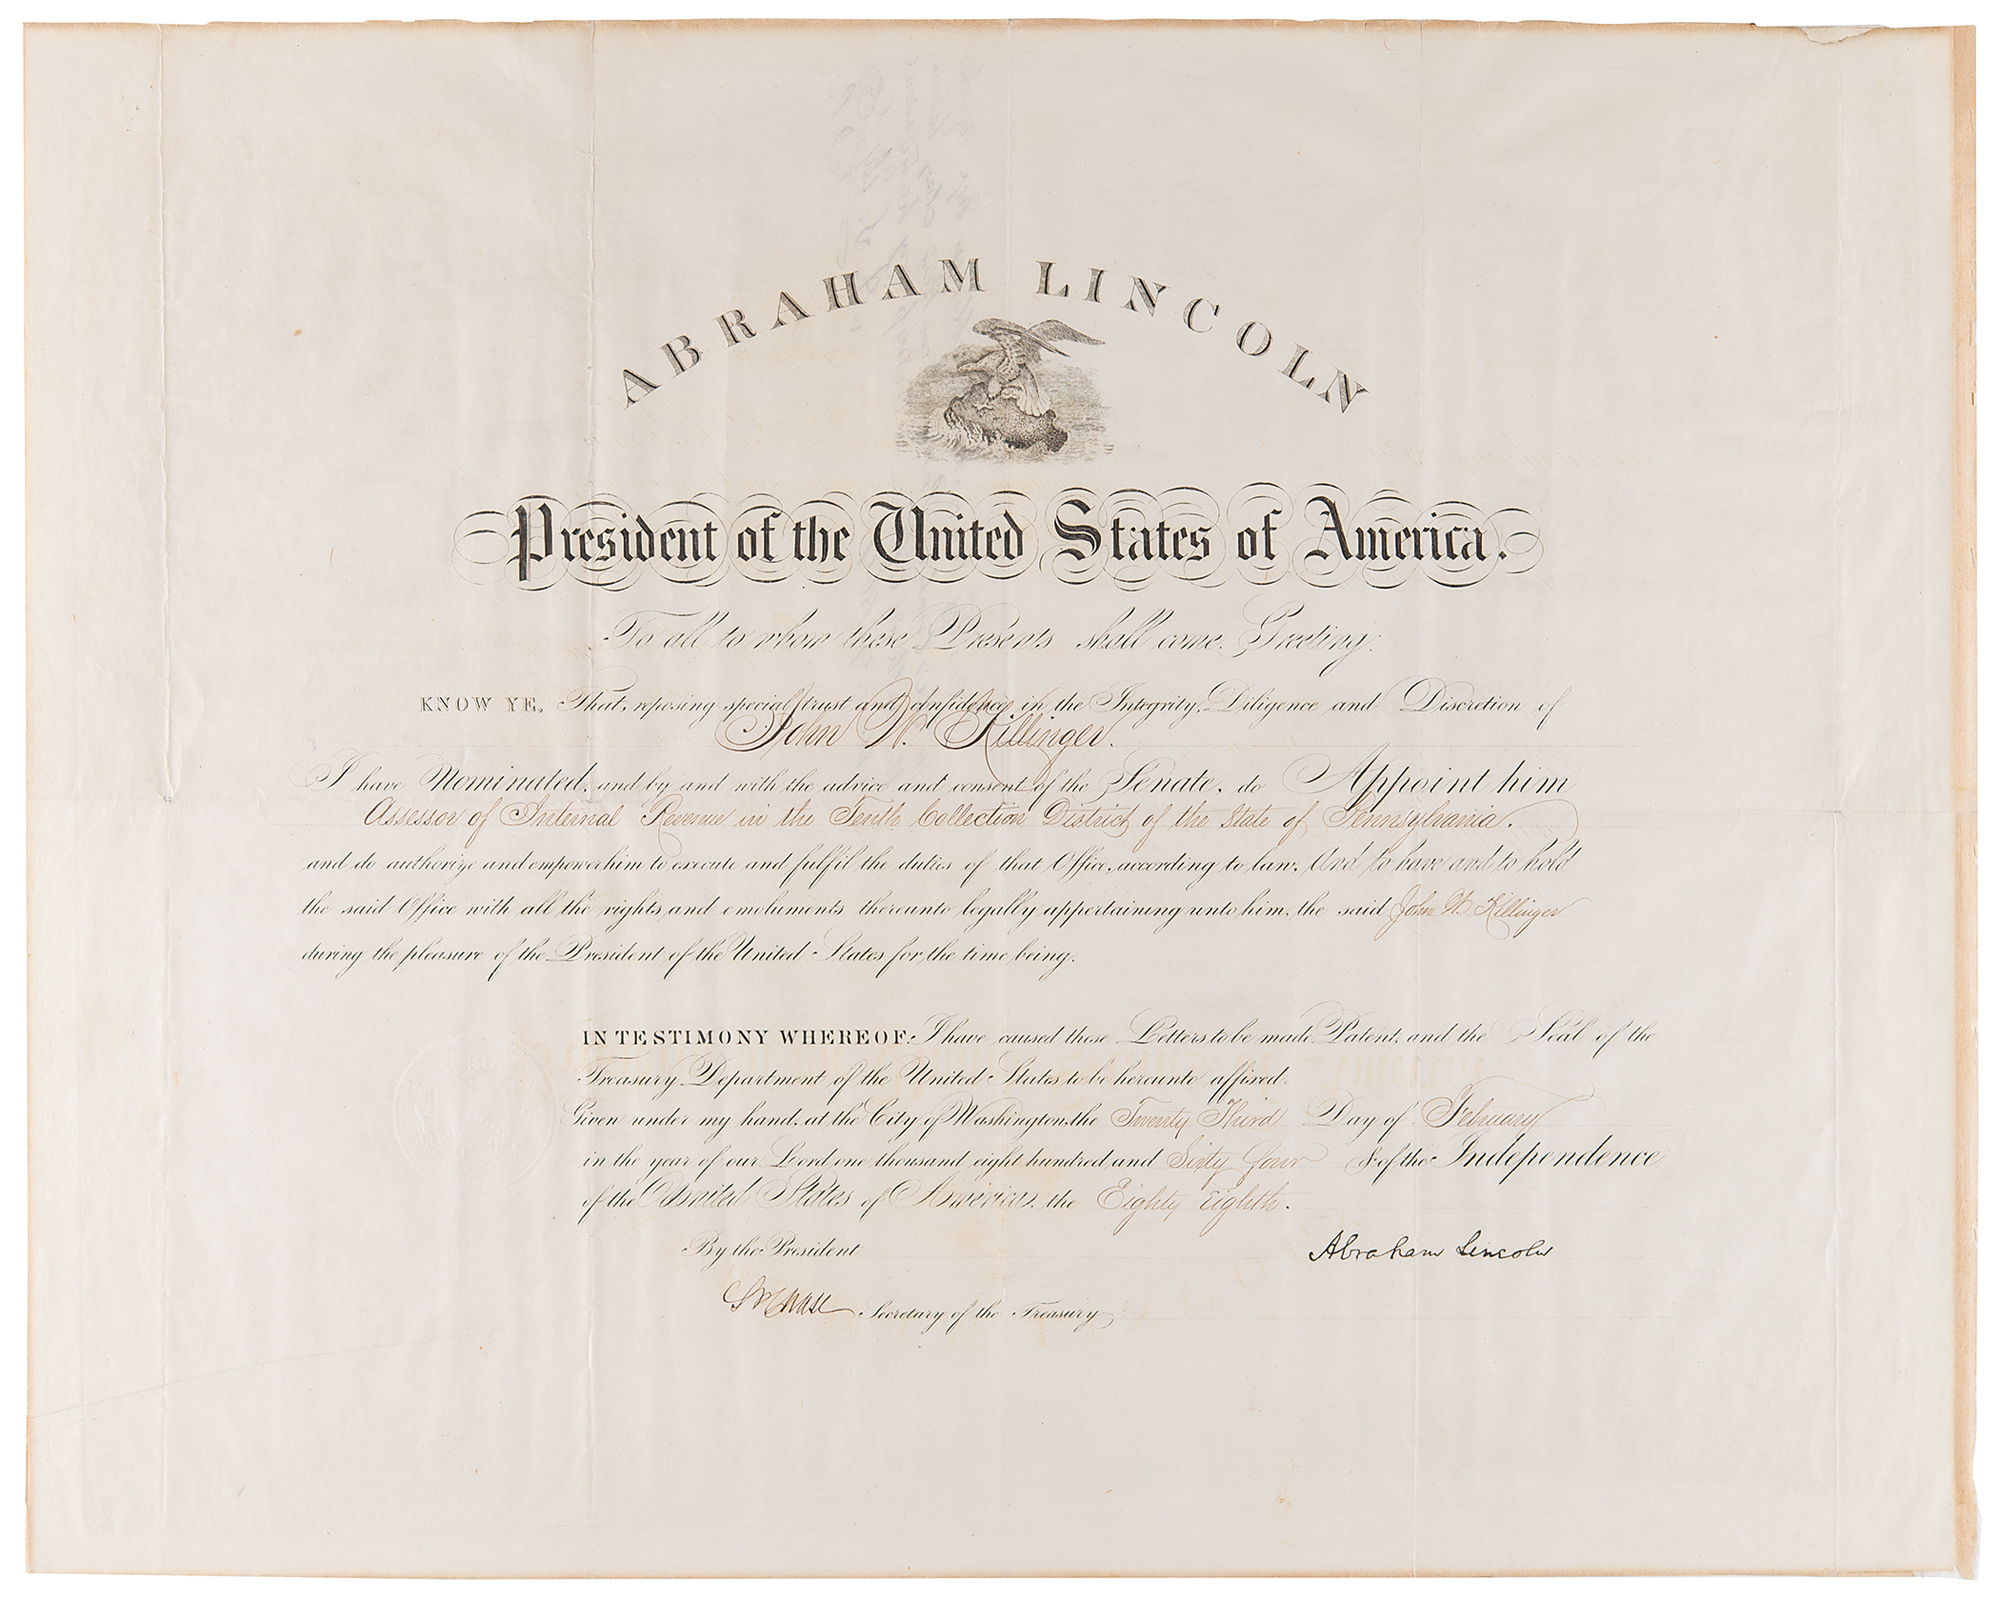 ABRAHAM LINCOLN
President of the United States of America.
To all to whom these Presents shall come. Greeting:
KNOW YE, That, reposing special trust and confidence in the Integrity, Diligence and Discretion of
John W. Killinger.
I have Nominated, and by and with the advice and consent of the Senate, do Appoint him
Assessor of Internal Revenue in the Tenth Collection District of the State of Pennsylvania.
and do authorize and empower him to execute and fulfil the duties of that Office, according to law. And to have and to hold
the said Office with all the rights and emoluments thereunto legally appertaining unto him, the said John W. Killinger
during the pleasure of the President of the United States for the time being.
IN TESTIMONY WHEREOF, I have caused these Letters to be made Patent, and the Seal of the
Treasury Department of the United States to be hereunto affixed.
Given under my hand, at the City of Washington, the Twenty Third Day of February
in the year of our Lord one thousand eight hundred and Sixty four & of the Independence
of the United States of America, the Eighty Eighth.
By the President
Abraham Lincoln
S P Chase Secretary of the Treasury